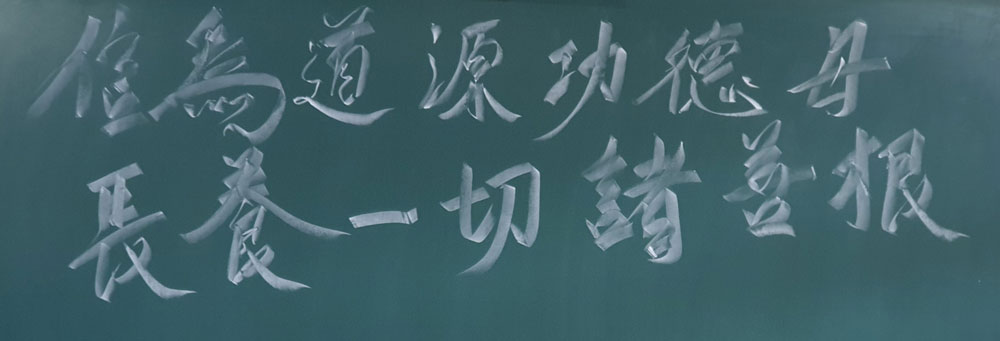 信為道源功德母
長養一切諸善根